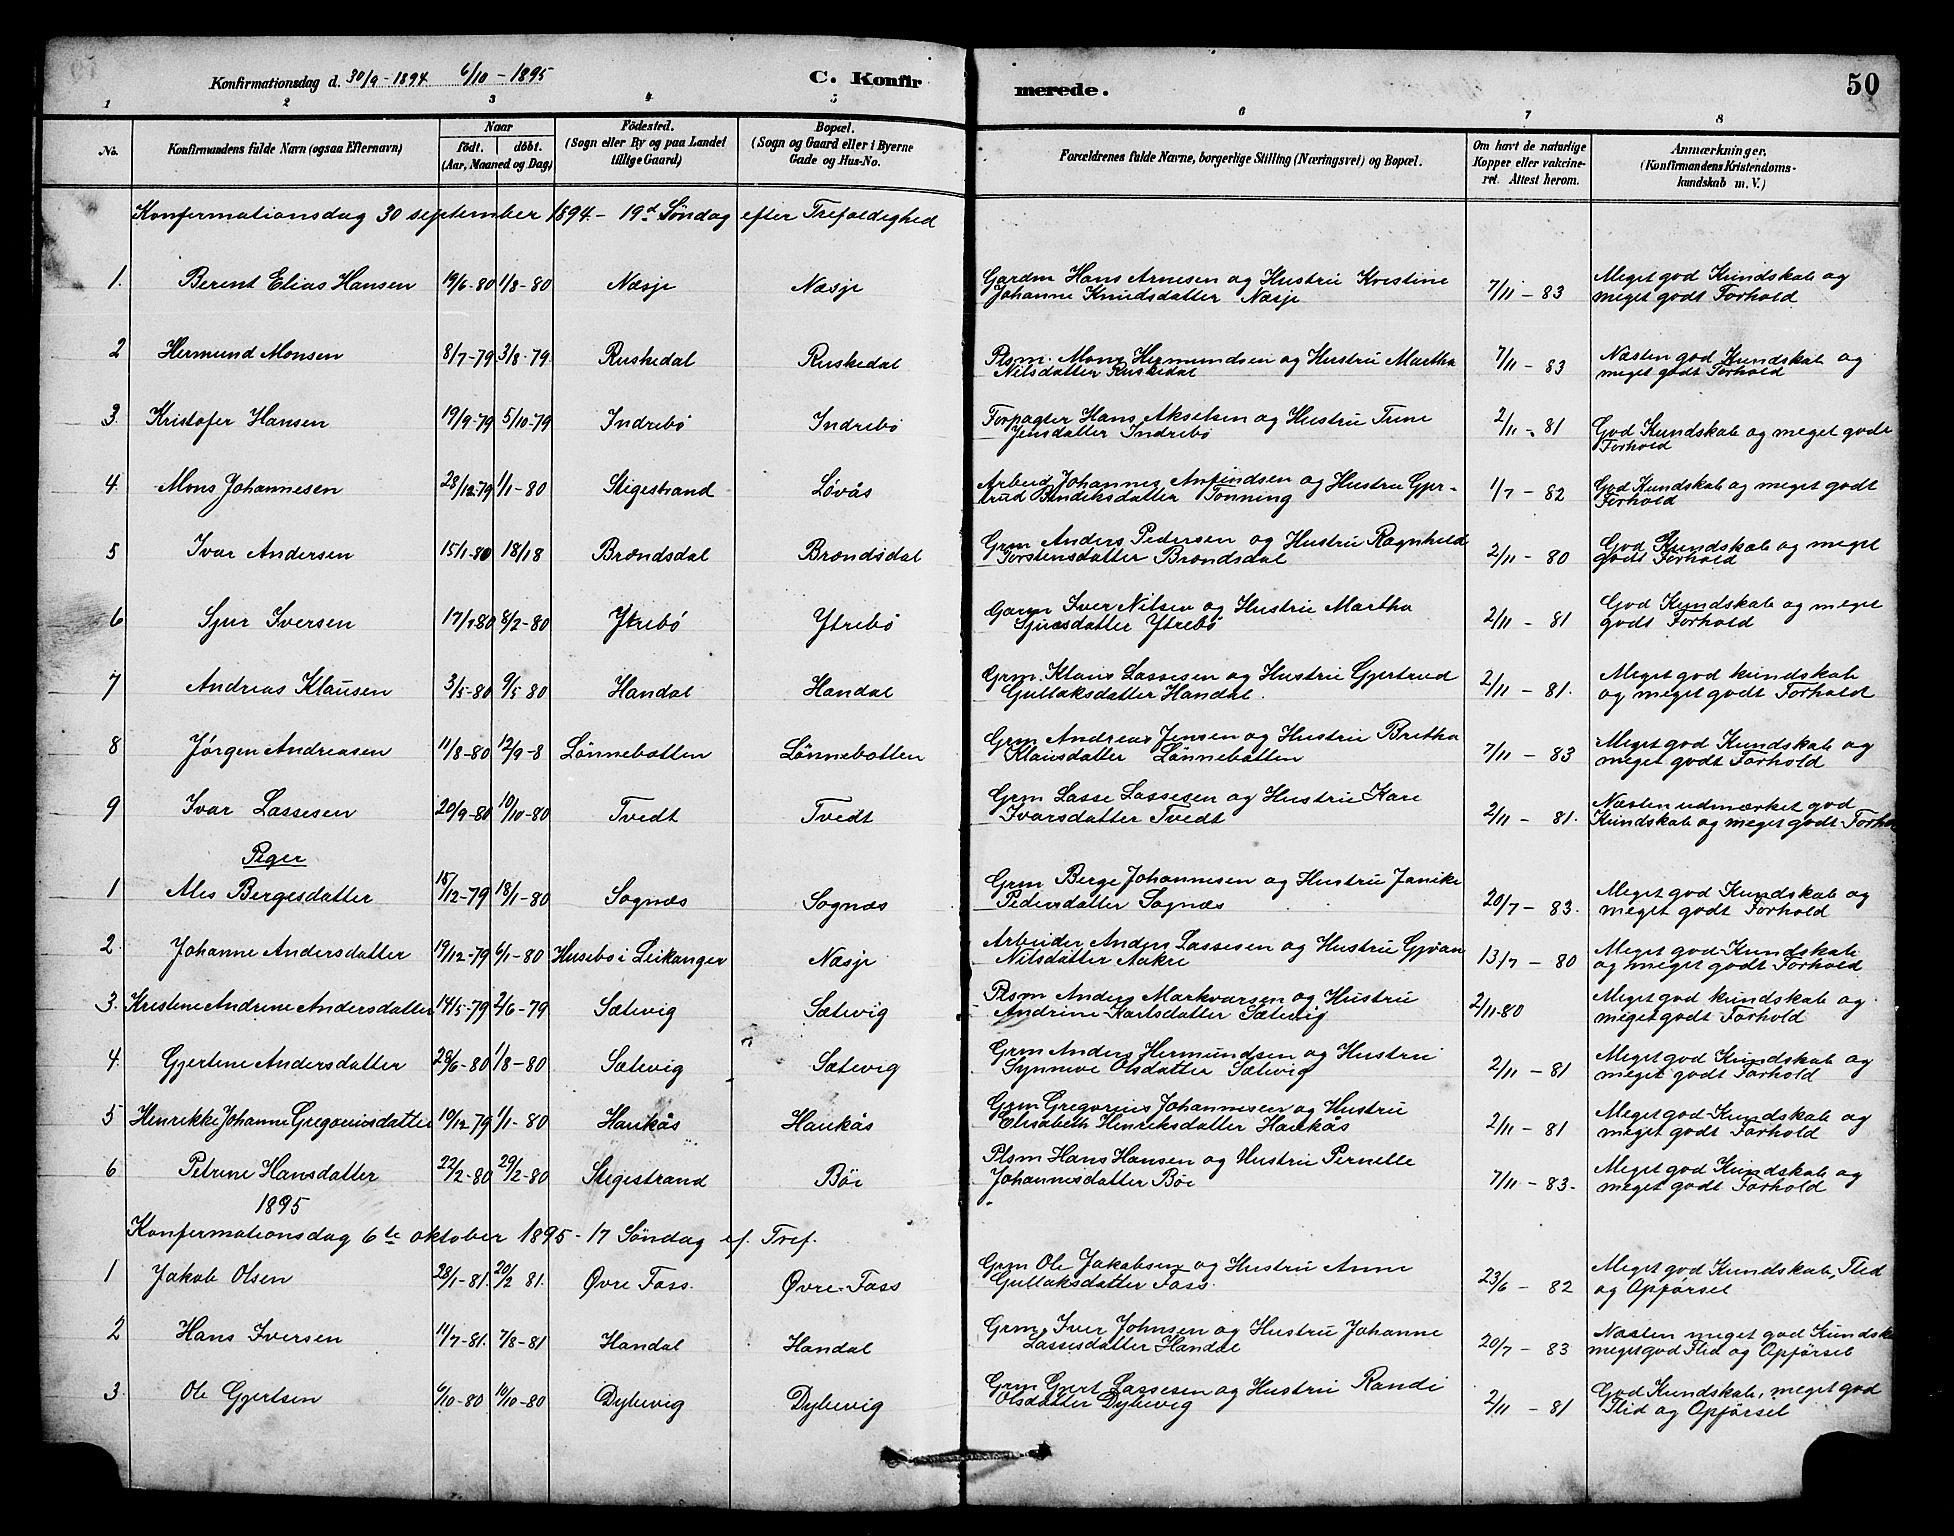 Konfirmationsdag d. 30/9 - 1894 6/10 - 1895
C. Konfirmerede.
50
1 2 3 4 5 6 7 8
No.
Konfirmandens fulde Navn (ogsaa Efternavn)
Naar
födt. döbt.
(Aar, Maaned og Dag)
Födested.
(Sogn eller By og paa Landet
tillige Gaard)
Bopæl.
(Sogn og Gaard eller i Byerne
Gade og Hus-No.
Forældrenes fulde Navne, borgerlige Stilling (Næringsvei) og Bopæl.
Om havt de naturlige
Kopper eller vakcine-
ret. Attest herom.
Anmærkninger,
(Konfirmandens Kristendoms-
kundskab m. V.)
Konfermationsdag 30 september 1894 - 19d Søndag efter Trefoldighed
1. Berent Elias Hansen 19/6-80 1/8-80 Næsje Næsje Gardm Hans Arnesen og Hustru Kristine
Johanne Knudsdatter Næsje 7/11 - 83 Meget god Kundskab og
meget godt Forhold
2 Hermund Monsen 8/7-79 3/8-79. Ruskedal Ruskedal Plsm. Mons Hermundsen og Hustru Martha
Nilsdatter Ruskedal 7/11 - 83 Næsten god Kundskab og
meget godt Forhold
3. Kristofer Hansen 19/9-79 5/10-79 Indrebö Indrebö Forpagter Hans Akselsen og Hustru Trine
Jensdatter Indrebö 2/11 - 81 God Kundskab og meget godt
Forhold
4. Mons Johannesen 28/12-79 1/1-80 Stigestrand Løvås Arbeid Johannes Anfindsen og Hustru Gjer-
trud Tönning 1/7 - 82 God Kundskab og meget godt
Forhold
5 Ivar Andersen 15/1-80 18/18 Brændsdal Brændsdal Grm Anders Pedersen og Hustru Ragnhild
Torstensdatter Brændsdal 2/11 - 80 God Kundskab og meget
godt Forhold
6 Sjur Iversen 17/1-80 8/2-80 Ytrebö Ytrebö Garm Iver Nilsen og Hustru Martha
Sjursdatter Ytrebö 2/11 - 81 God Kundskab og meget
godt Forhold
7 Andreas Klausen 3/5-80 9/5 80 Handal Handal Grm. Klaus Lassesen og Hustru Gjertrud
Gullaksdatter Handal. 2/11 - 81. Meget god kundskab
og meget godt Forhold
8 Jørgen Andreasen 11/8-80 12/9-8 Lönnebotten Lönnebotten Grm Andreas Jensen og Hustru Britha
Klausdatter Lönnebotten 7/11 - 83 Meget god Kundskab og
meget godt Forhold
9 Ivar Lassesen 20/9-80 10/10-80 Tvedt Tvedt Grm Lasse Lassesen og Hustru Kari
Ivarsdatter Tvedt 2/11 - 81. Næsten udmærket god
Kundskab og meget godt Forho
Piger
1 Ales Bergesdatter 18/12-79 18/1-80 Sognæs Sognæs Grm Berge Johannesen og Hustru Janike
Pedersdatter Sognæs 20/7 - 83. Meget god Kundskab og
meget godt Forhold
2. Johanne Andersdatter 19/12-79 6/1-80 Husebö i Leikanger Næsje Arbeider Anders Lassesen og Hustru
Nilsdatter Aakre 13/7 - 80 Meget god Kundskab
og meget godt Forhold
3. Kristene Andrine Andersdatter 14/5-79 2/6-79 Sætevig Sætevig Plsm Anders Markvarsen og Hustru
Andrine Karlsdatter Sætevig 2/11-80 Meget god kundskab og
meget godt Forhold
4. Gjertine Andersdatter 28/6-80 1/8-80 Sætevig Sætevig Grm Anders Hermundsen og Hustru
Synneve Olsdatter Sætevig 2/11 - 81 Meget god Kundskab og
meget godt Forhold
5 Henrikke Johanne Gregoriusdatter 10/12-79 1/1-80 Haukås Haukås Grm Gregorius Johannesen og Hustru
Elisabeth Henriksdatter Haukås 2/11 - 81 Meget god Kundskab og
meget godt Forhold
6 Petrine Hansdatter 22/2-80 29/2-80 Stigestrand Böe Plsm Hans Hansen og Hustru Pernelle
Johannesdatter Böe 7/11 - 83. Meget god Kundskab og
meget godt Forhold
1895
Konfermationsdag 6te oktober 1895 - 17 Söndag ef. Tref.
1 Jakob Olsen 28/1-81. 20/2 81. Øvre Fass. Øvre Fass Grm Ole Jakobsen og Hustru Anne
Gullaksdatter Fass. 23/6 - 82 Meget god Kundskab, Flid
og Opførsel
2 Hans Iversen 11/7-81. 7/8-81 Handal Handal Grm. Iver Johnsen og Hustru Johanne
Lassesdatter Handal 20/7 - 83 Næsten meget god Kundsk
meget god Flid og Opførsel
3. Ole Gjertsen 6/10-80 10/10-80 Dybevig Dybevig Grm Gjert Lassesen og Hustru Randi
Olsdatter Dybevig 2/11 - 81 God Kundskab, meget god
Flid og Opførsel